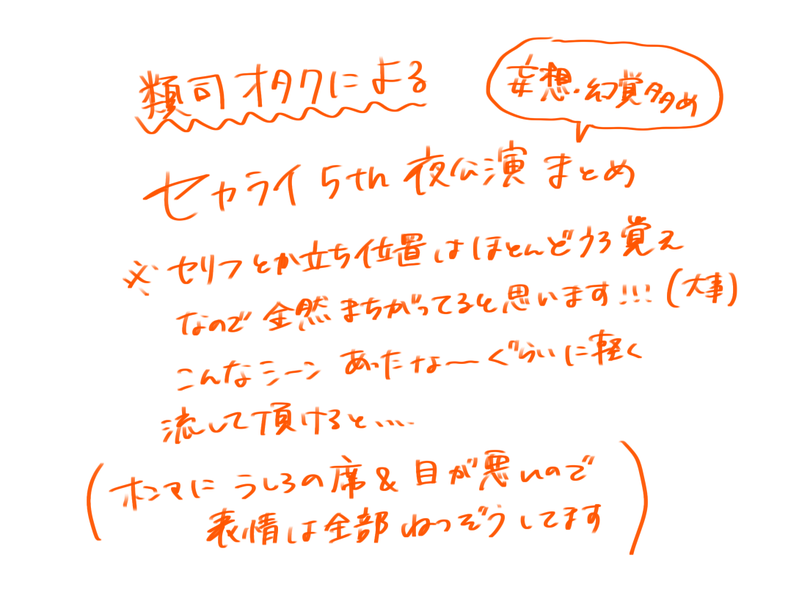 類司オタクによる
妄想・幻覚多め
セカライ5th 夜公演 まとめ
※ セリフとか立ち位置はほとんどうろ覚え
なので 全然まちがってると思います!!!(大事)
こんなシーン あったな〜ぐらいに軽く
流して頂けると....
(ホンマに うしろの席&目が悪いので
表情は全部 ねつぞうしてます)